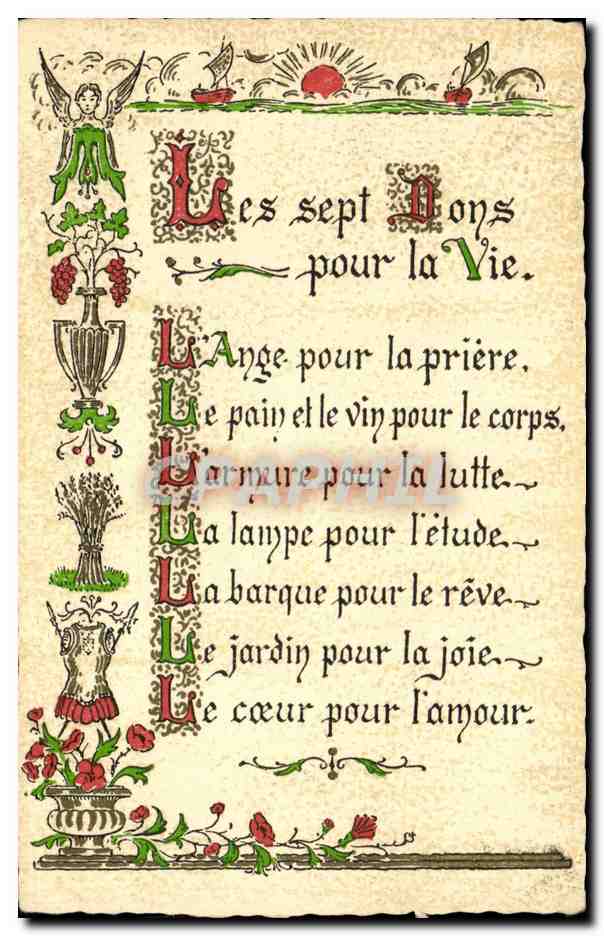 Les sept Dons
pour la Vie.
L'Ange pour la prière,
Le pain et le vin pour le corps,
L'armure pour la lutte
La lampe pour l'étude
La barque pour le rêve
Le jardin pour la joie
Le cœur pour l'amour.